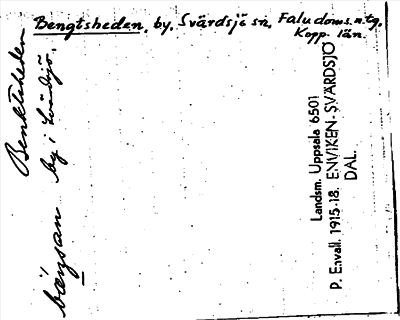 Bengtsheden, by, Svärdsjö sn, Falu doms.n.tg,
Kopp. län.
Benktsheden
by i Svärdsjö.
Landsm. Uppsala 6501
P. Envall. 1915-18. ENVIKEN-SVÄRDSJÖ
DAL.